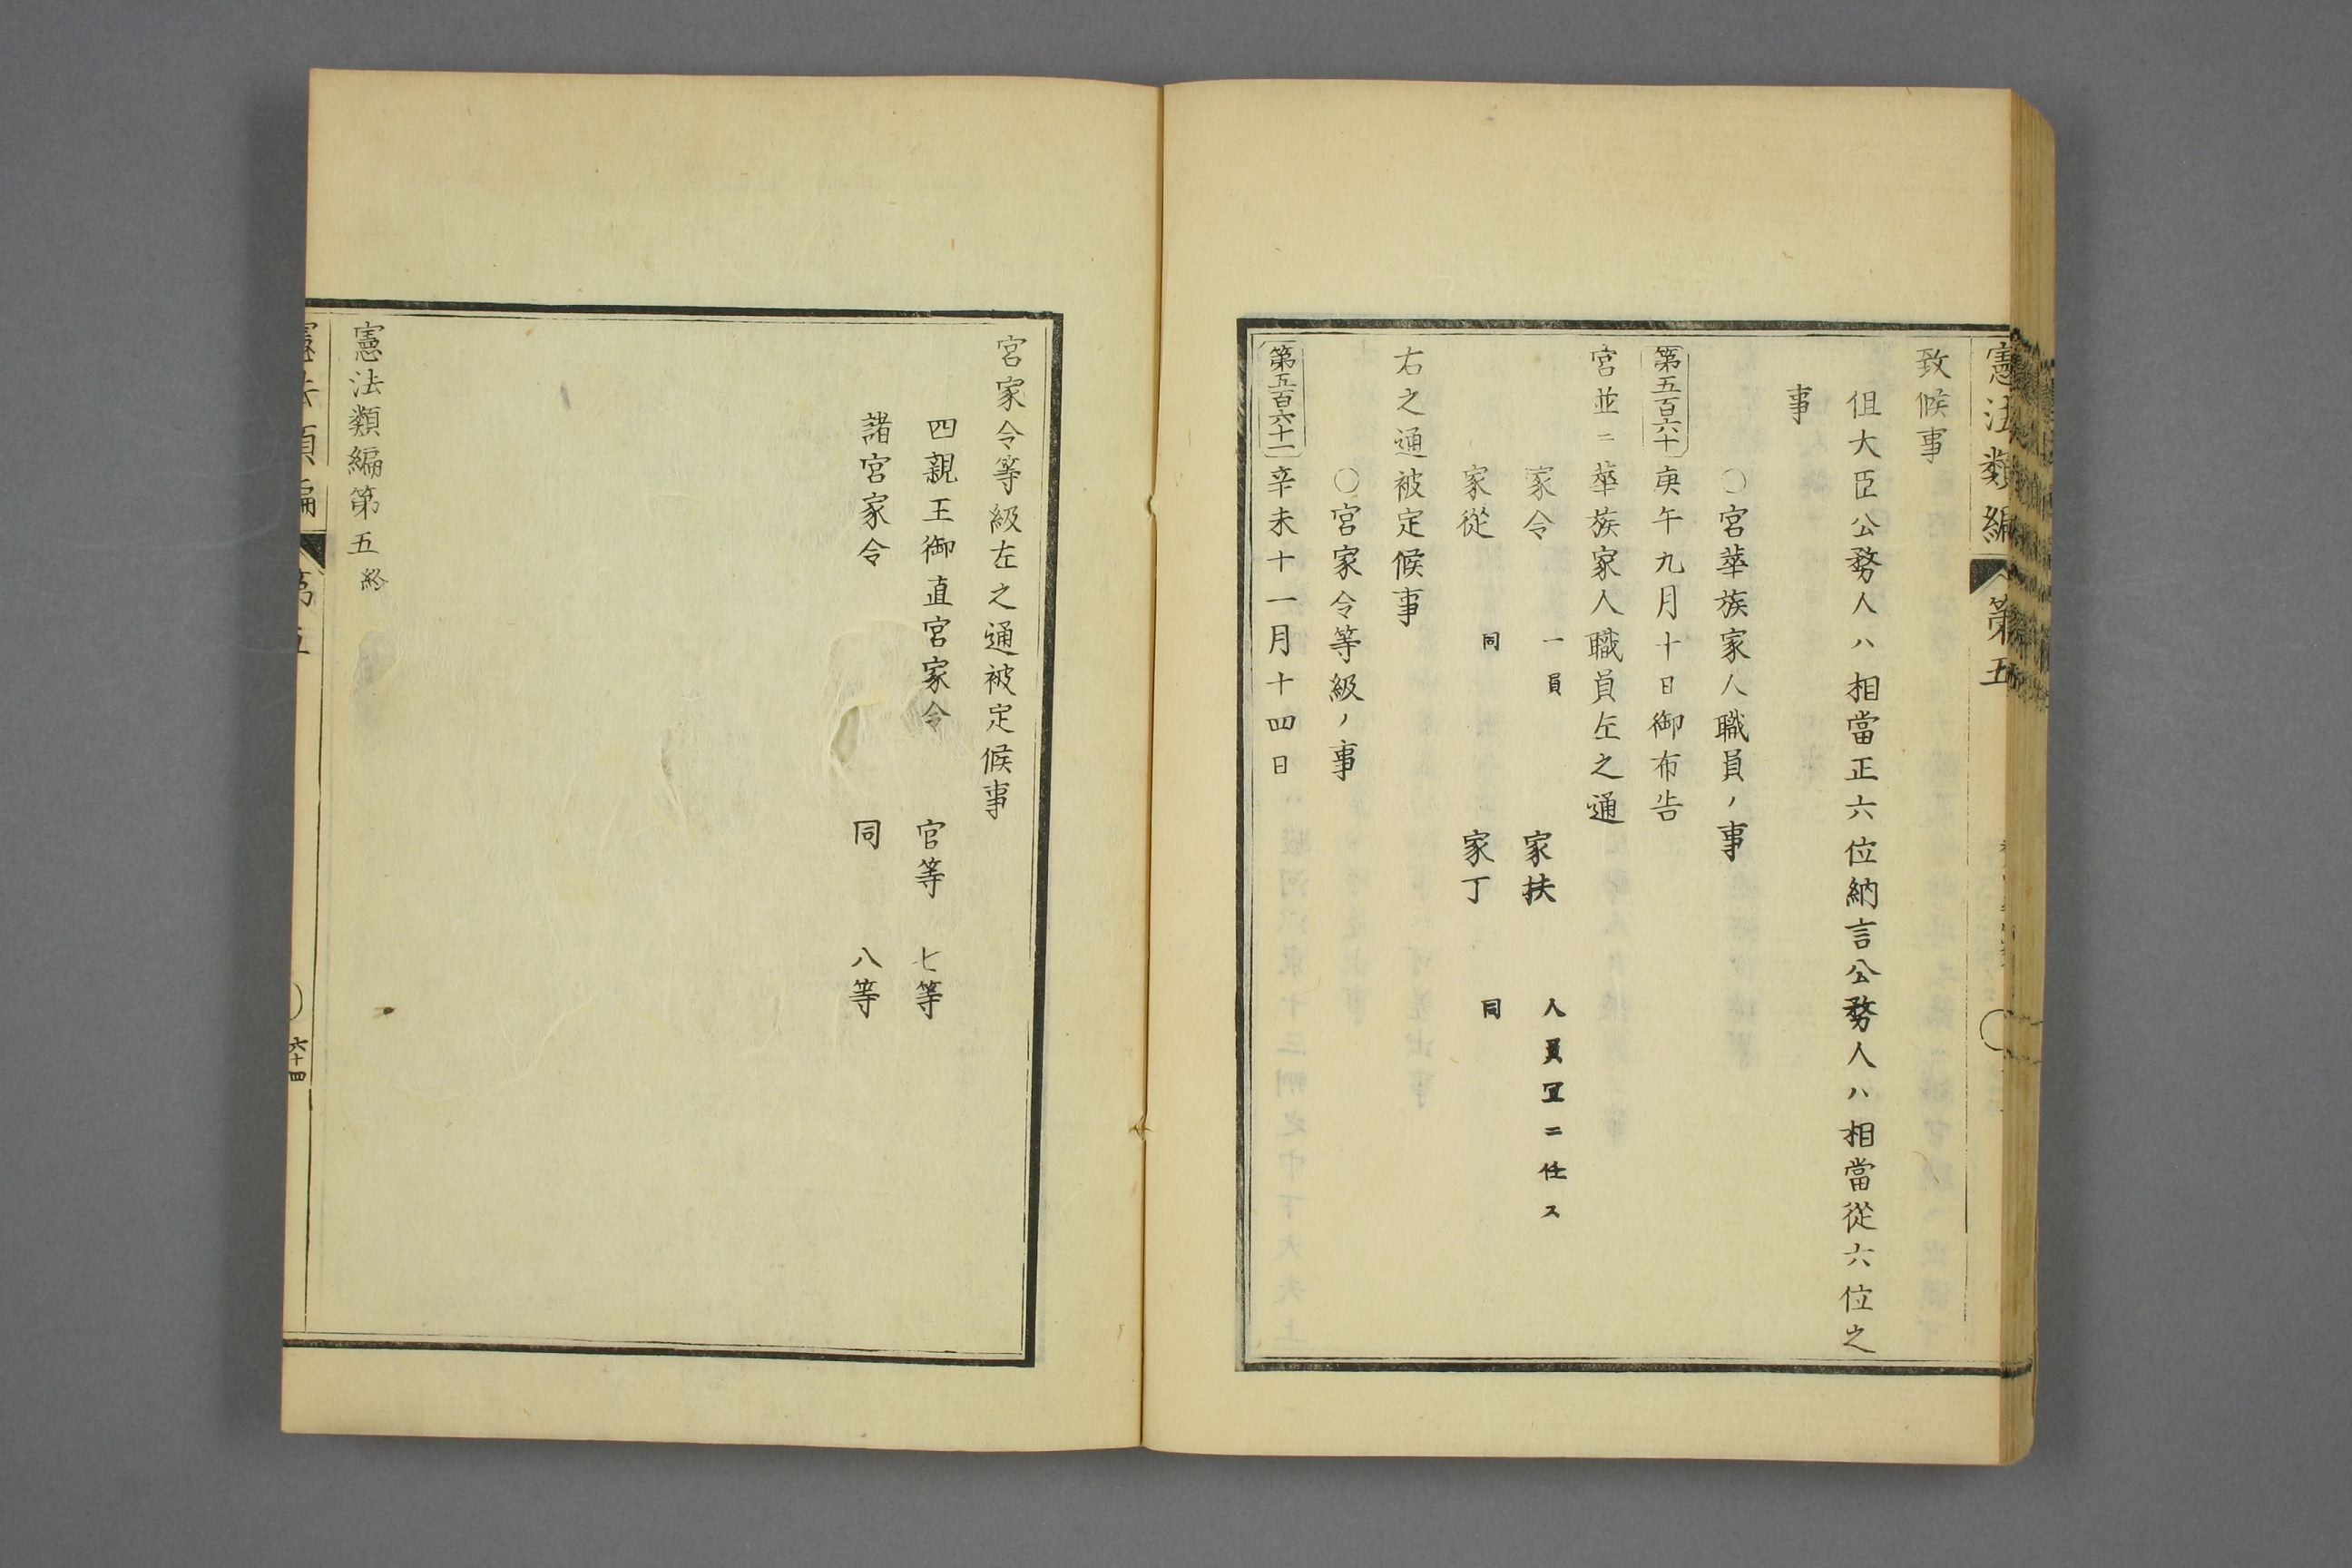 憲法類編 第五
致候事
但大臣公務人ハ相當正六位納言公務人ハ相當從六位之
事
○宮華族家人職員ノ事
第五百六十 庚午九月十日御布告
宮並ニ華族家人職員左之通
家令 一員 家扶 人員宜ニ任ス
家從 同 家丁 同
右之通被定候事
○宮家令等級ノ事
第五百六十一 辛未十一月十四日
宮家令等級左之通被定候事
四親王御直宮家令 官等 七等
諸宮家令 同 八等
憲法類編第五終
憲法類編 第五 六十四